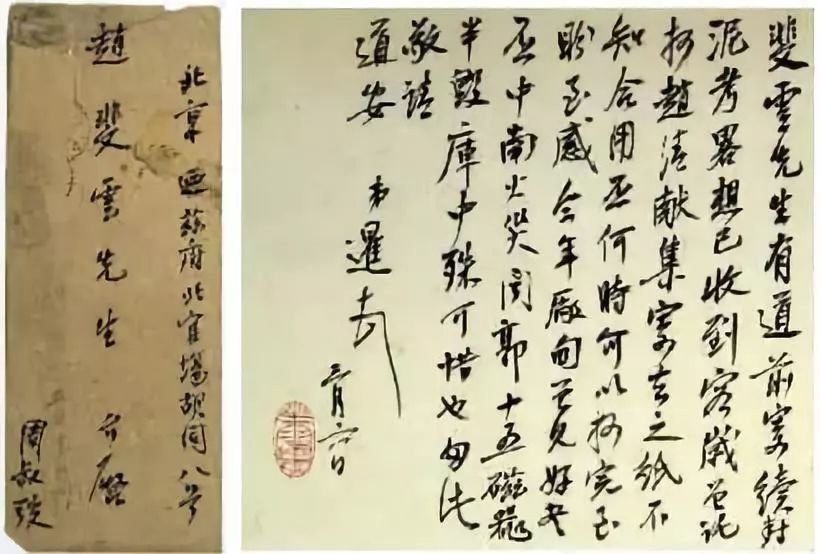 北京廼兹府北官場胡同八号
趙斐雲先生台啓
周叔弢
斐雲先生有道前寄續封
泥考畧想已收到客歲曾託
抄趙清獻集寄去之紙不
知合用否何時可以抄完至
盼至感今年廠甸曾見好書
否中南火災聞郭十五磁器
半毀庫中殊可惜也匆此
敬請
道安 弟暹
月六日